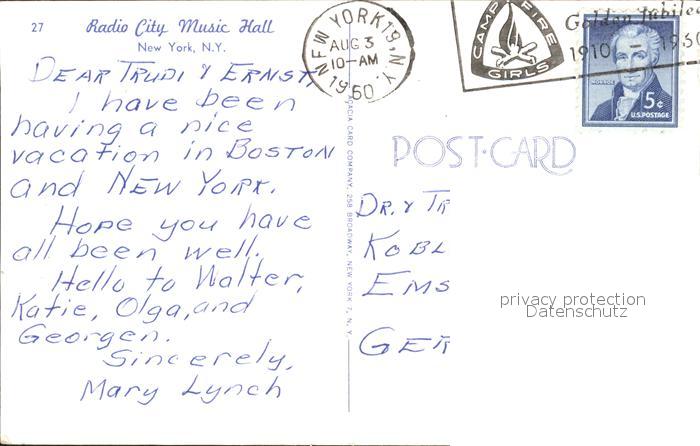 27 Radio City Music Hall
New York, N.Y.
DEAR TRUDI & ERNST,
I have been
having a nice
vacation in BOSTON
and NEW YORK.
Hope you have
all been well.
Hello to Walter,
Katie, Olga, and
Georgen.
Sincerely,
Mary Lynch
ACACIA CARD COMPANY, 258 BROADWAY, NEW YORK 7, N. Y.
NEW YORK 19, N.Y.
AUG 3
10-AM
1960
CAMP FIRE
GIRLS
Golden Jubilee
1910 - 1960
MONROE
5¢
U.S.POSTAGE
POST-CARD
DR. & TR
KOBL
EMS
GER
privacy protection
Datenschutz